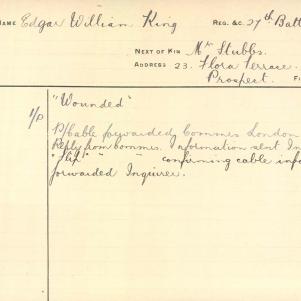 NAME Edgar William King REG. &C. 27th Batt
NEXT OF KIN Mr Stubbs.
ADDRESS 23. Flora Terrace.
Prospect. F
"Wounded"
P/cable forwarded Commrs London
Reply from Commrs. Information sent In
"Slip" " " confirming cable info
forwarded Inquirer.